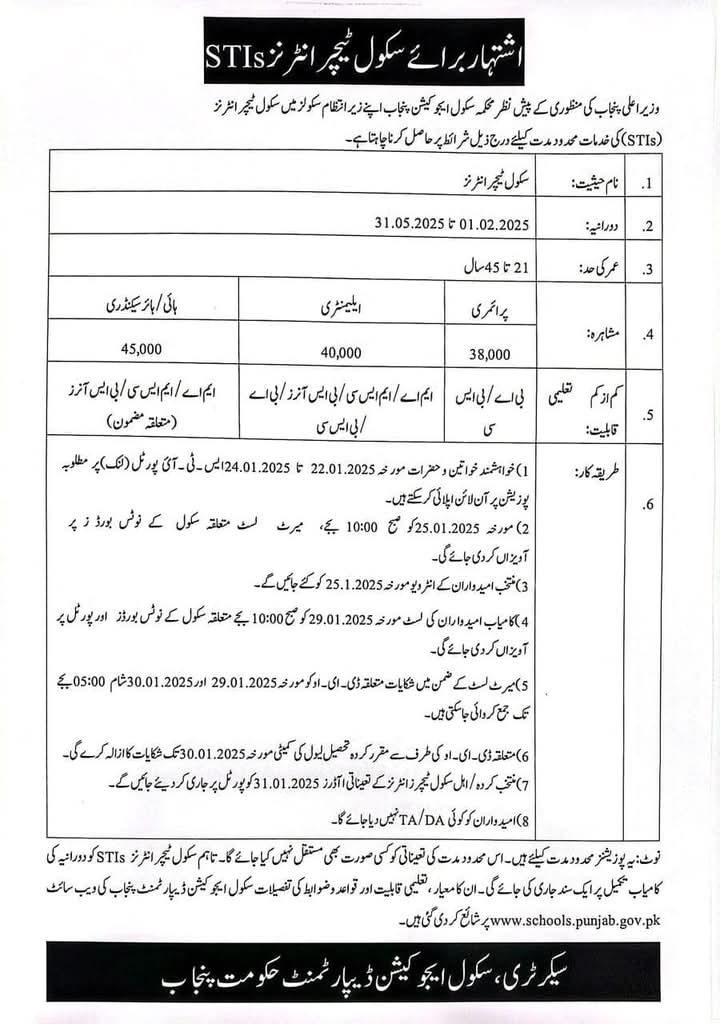 اشتہار برائے سکول ٹیچر انٹرنز STIs
وزیراعلی پنجاب کی منظوری کے پیش نظر محکمہ سکول ایجوکیشن پنجاب اپنے زیر انتظام سکولز میں سکول ٹیچر انٹرنز
(STIs) کی خدمات محدود مدت کیلئے درج ذیل شرائط پر حاصل کرنا چاہتا ہے۔
1. نام حیثیت: سکول ٹیچر انٹرنز
2. دورانیہ: 01.02.2025 تا 31.05.2025
3. عمر کی حد: 21 تا 45 سال
4. مشاہرہ: پرائمری ایلیمنٹری ہائی/ہائر سیکنڈری
38,000 40,000 45,000
5. کم از کم تعلیمی بی اے/بی ایس ایم اے/ایم ایس سی/بی ایس آنرز/بی اے ایم اے/ایم ایس سی/بی ایس آنرز
قابلیت: سی /بی ایس سی (متعلقہ مضمون)
6. طریقہ کار: 1) خواہشمند خواتین و حضرات مورخہ 22.01.2025 تا 24.01.2025 ایس-ٹی-آئی پورٹل (لنک) پر مطلوبہ
پوزیشن پر آن لائن اپلائی کر سکتے ہیں۔
2) مورخہ 25.01.2025 کو صبح 10:00 بجے، میرٹ لسٹ متعلقہ سکول کے نوٹس بورڈ ز پر
آویزاں کر دی جائے گی۔
3) منتخب امیدواران کے انٹرویو مورخہ 25.1.2025 کو کئے جائیں گے۔
4) کامیاب امیدواران کی لسٹ مورخہ 29.01.2025 کو صبح 10:00 بجے متعلقہ سکول کے نوٹس بورڈز اور پورٹل پر
آویزاں کر دی جائے گی۔
5) میرٹ لسٹ کے ضمن میں شکایات متعلقہ ڈی-ای-او کو مورخہ 29.01.2025 اور 30.01.2025 شام 05:00 بجے
تک جمع کروائی جاسکتی ہیں۔
6) متعلقہ ڈی-ای-او کی طرف سے مقرر کردہ تحصیل لیول کی کمیٹی مورخہ 30.01.2025 تک شکایات کا ازالہ کرے گی۔
7) منتخب کردہ/اہل سکول ٹیچرز انٹرنز کے تعیناتی آڈرز 31.01.2025 کو پورٹل پر جاری کر دیئے جائیں گے۔
8) امیدواران کو کوئی TA/DA نہیں دیا جائے گا۔
نوٹ: یہ پوزیشنز محدود مدت کیلئے ہیں۔ اس محدود مدت کی تعیناتی کو کسی صورت بھی مستقل نہیں کیا جائے گا۔ تاہم سکول ٹیچر انٹرنز STIs کو دورانیہ کی
کامیاب تکمیل پر ایک سند جاری کی جائے گی۔ ان کا معیار، تعلیمی قابلیت اور قواعد و ضوابط کی تفصیلات سکول ایجوکیشن ڈیپارٹمنٹ پنجاب کی ویب سائٹ
www.schools.punjab.gov.pk پر شائع کر دی گئی ہیں۔
سیکرٹری، سکول ایجوکیشن ڈیپارٹمنٹ حکومت پنجاب